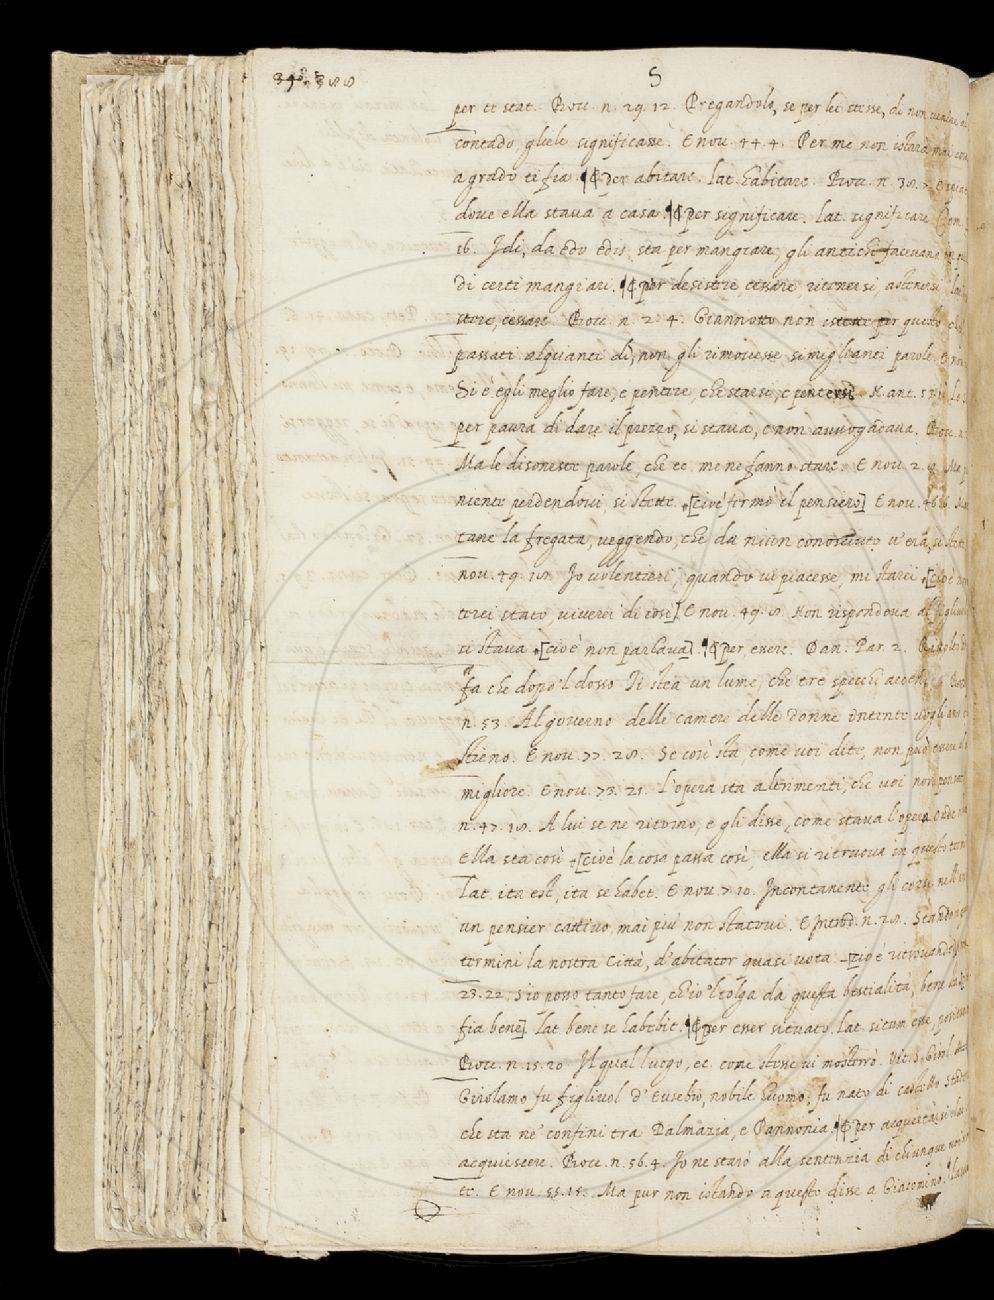 S
per et stat. Bocc. n. 29. 12. Pregandolo, se per lei stesse, di non venire al
contado, gliele significasse. E nov. 44. 4. Per me non istarà mai cosa
a grado ti fia. ¶ Per abitare. lat. habitare. Bocc. n. 38. 7.
dove ella stava a casa. ¶ per significare. lat. significare
16. Jdi, da edo edis, sta per mangiare, gli antichi facevano
di certi mangiari. ¶ per desistere, cessare, ritenersi, astenersi.
stere, cessare. Bocc. n. 2. 4. Giannotto non istette per questo
passati alquanti dì, non gli rimovesse simiglianti parole.
Si è egli meglio fare, e pentere, che starsi, e pentersi. N. ant.
per paura di dare il prezzo, si stava, e non avvogacava. Bocc. n.
Ma le disoneste parole, che ec. me ne fanno stare. E nov. 2.
niente perdendovi, si stette. [cioè fermò il pensiero] E nov. 46.
tane la fregata, veggendo, che da niun conosciuto v'era, si stet
nov. 49. 18. Jo volentieri, quando vi piacesse, mi starei [cioè
terei stato, viverei di così] E nov. 49. 8. Non rispondeva al
si stava [cioè non parlava]. ¶ per, essere. Dan. Par. 2.
fa che dopo 'l dosso Ti stea un lume, che tre specchi
n. 53. Al governo delle camere delle donne intente voglia
stieno. E nov. 77. 28. Se così sta, come voi dite, non può
migliore. E nov. 73. 21. L'opera sta altrimenti, che voi non pensate
n. 47. 18. A lui se ne ritornò, e gli disse, come stava l'opera. Onde
Ella sta così [cioè la cosa passa così, ella si ritruova in questo
lat. ita est, ita se habet. E nov. 7. 10. Incontanente gli corse nell
un pensier cattivo, mai più non statovi. E Introd. n. 28. Stando
termini la nostra Città, d'abitator quasi vota [cioè ritrovandosi
23. 22. S'io posso tanto fare, ch'io 'l tolga da questa bestialità, bene
fia bene]. lat. bene se habebit. ¶ per esser situato. lat. situm esse,
Bocc. n. 15. 20 Il qual luogo, ec. come stesse vi mosterrò. Vit. S. Girol.
Girolamo fu figliuol d'Eusebio, nobile huomo, fu nato di castello
che sta ne' confini tra Dalmazia, e Pannonia. ¶ per acquetarsi
acquiescere. Bocc. n. 56. 4. Jo ne starò alla sentenzia di chiunque
ec. E nov. 55. 15. Ma pur non istando a questo disse a Giacomino.